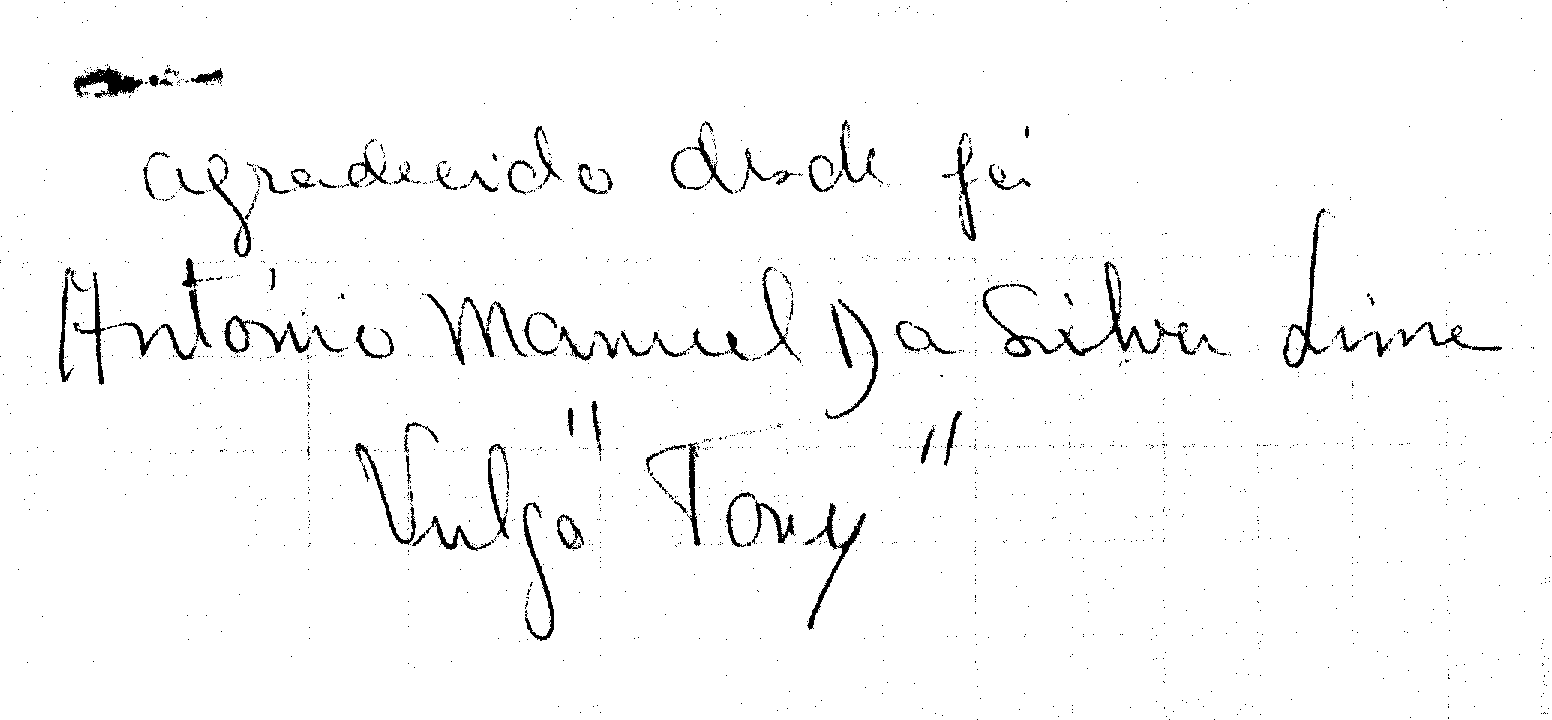 agradecido desde já
António Manuel Da Silva Lima
Vulgo "Tony"